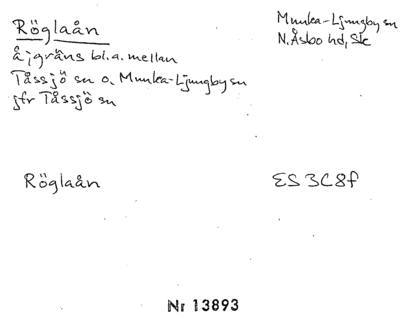 Röglaån
Munka-Ljungby sn
N. Åsbo hd, Sk
å; gräns bl.a. mellan
Tåssjö sn o. Munka-Ljungby sn
jfr Tåssjö sn
Röglaån
ES 3C8f
Nr 13893